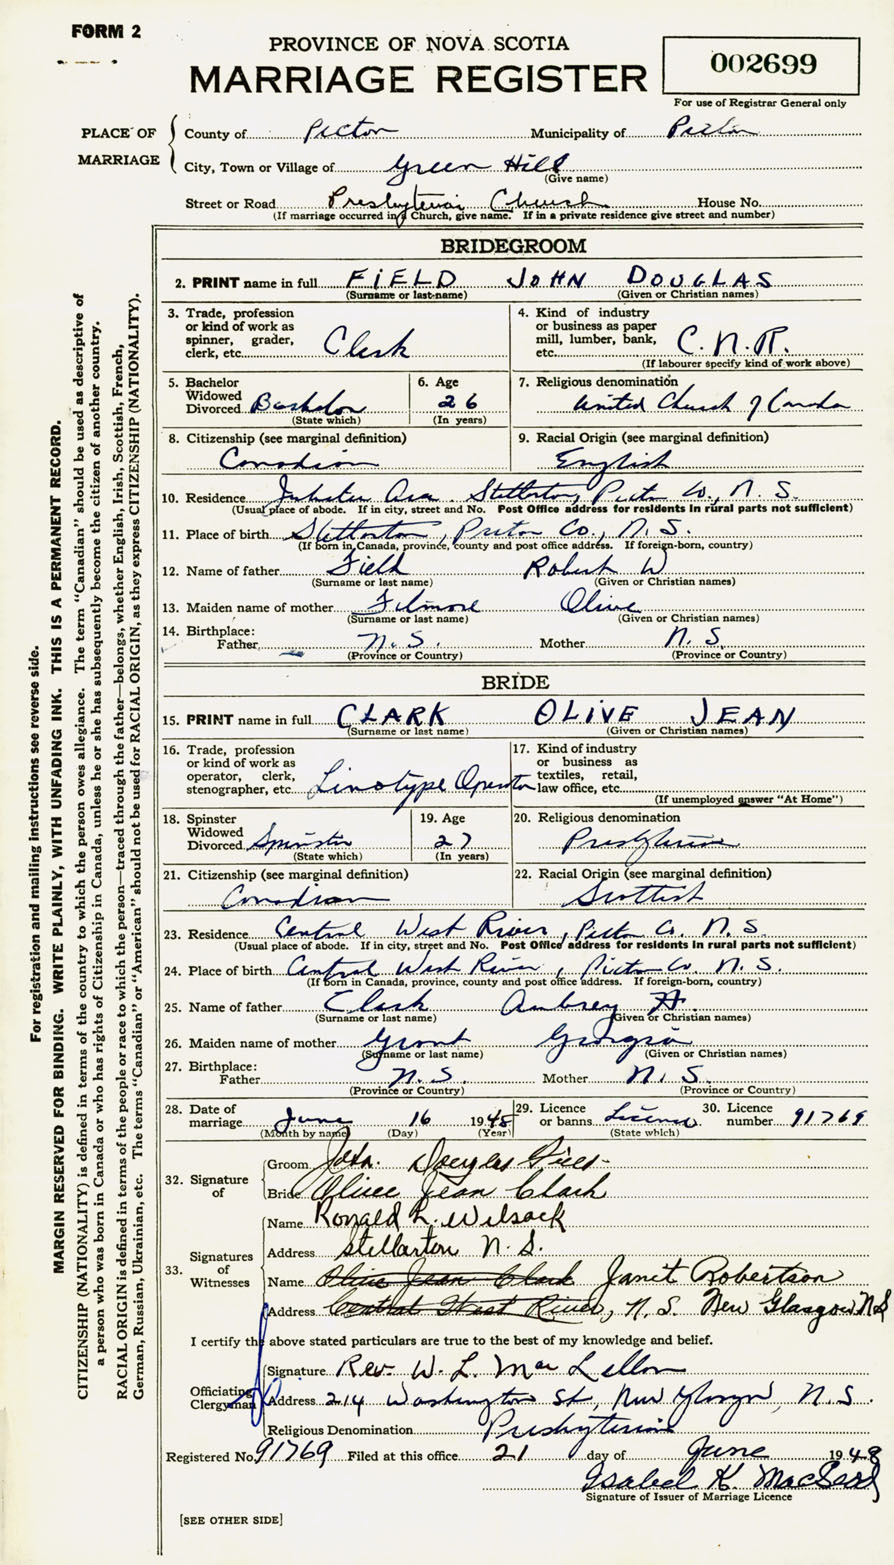 FORM 2
PROVINCE OF NOVA SCOTIA
MARRIAGE REGISTER
002699
For use of Registrar General only
PLACE OF MARRIAGE
County of Pictou Municipality of Pictou
City, Town or Village of Green Hill
(Give name)
Street or Road Presbyterian Church House No.
(If marriage occurred in a Church, give name. If in a private residence give street and number)
BRIDEGROOM
2. PRINT name in full FIELD JOHN DOUGLAS
(Surname or last-name) (Given or Christian names)
3. Trade, profession or kind of work as spinner, grader, clerk, etc. Clerk
4. Kind of industry or business as paper mill, lumber, bank, etc. C.N.R.
(If labourer specify kind of work above)
5. Bachelor Widowed Divorced Bachelor
(State which)
6. Age 26
(In years)
7. Religious denomination United Church of Canada
8. Citizenship (see marginal definition) Canadian
9. Racial Origin (see marginal definition) English
10. Residence Ave. Stellarton, Pictou Co., N.S.
(Usual place of abode. If in city, street and No. Post Office address for residents in rural parts not sufficient)
11. Place of birth Stellarton, Pictou Co., N.S.
(If born in Canada, province, county and post office address. If foreign-born, country)
12. Name of father Field Robert W
(Surname or last name) (Given or Christian names)
13. Maiden name of mother Filmore Olive
(Surname or last name) (Given or Christian names)
14. Birthplace:
Father N.S. Mother N.S.
(Province or Country) (Province or Country)
BRIDE
15. PRINT name in full CLARK OLIVE JEAN
(Surname or last name) (Given or Christian names)
16. Trade, profession or kind of work as operator, clerk, stenographer, etc. Linotype Operator
17. Kind of industry or business as textiles, retail, law office, etc.
(If unemployed answer "At Home")
18. Spinster Widowed Divorced Spinster
(State which)
19. Age 27
(In years)
20. Religious denomination Presbyterian
21. Citizenship (see marginal definition) Canadian
22. Racial Origin (see marginal definition) Scottish
23. Residence Central West River, Pictou Co. N.S.
(Usual place of abode. If in city, street and No. Post Office address for residents in rural parts not sufficient)
24. Place of birth Central West River, Pictou Co. N.S.
(If born in Canada, province, county and post office address. If foreign-born, country)
25. Name of father Clark Aubrey
(Surname or last name) (Given or Christian names)
26. Maiden name of mother Grant Georgia
(Surname or last name) (Given or Christian names)
27. Birthplace:
Father N.S. Mother N.S.
(Province or Country) (Province or Country)
28. Date of marriage June 16 1948
(Month by name) (Day) (Year)
29. Licence or banns License
(State which)
30. Licence number 91769
32. Signature of
Groom John Douglas Field
Bride Olive Jean Clark
33. Signatures of Witnesses
Name Ronald L. Wilsack
Address Stellarton N.S.
Name Olive Jean Clark Janet Robertson
Address Central West River, N.S. New Glasgow NS
I certify the above stated particulars are true to the best of my knowledge and belief.
Officiating Clergyman
Signature Rev. W. L. MacLellan
Address 214 Washington St, New Glasgow, N.S.
Religious Denomination Presbyterian
Registered No. 91769 Filed at this office 21 day of June 1948
Isabel K. MacLeod
Signature of Issuer of Marriage Licence
[SEE OTHER SIDE]
For registration and mailing instructions see reverse side.
MARGIN RESERVED FOR BINDING. WRITE PLAINLY, WITH UNFADING INK. THIS IS A PERMANENT RECORD.
CITIZENSHIP (NATIONALITY) is defined in terms of the country to which the person owes allegiance. The term "Canadian" should be used as descriptive of
a person who was born in Canada or who has rights of Citizenship in Canada, unless he or she has subsequently become the citizen of another country.
RACIAL ORIGIN is defined in terms of the people or race to which the person—traced through the father—belongs, whether English, Irish, Scottish, French,
German, Russian, Ukrainian, etc. The terms "Canadian" or "American" should not be used for RACIAL ORIGIN, as they express CITIZENSHIP (NATIONALITY).